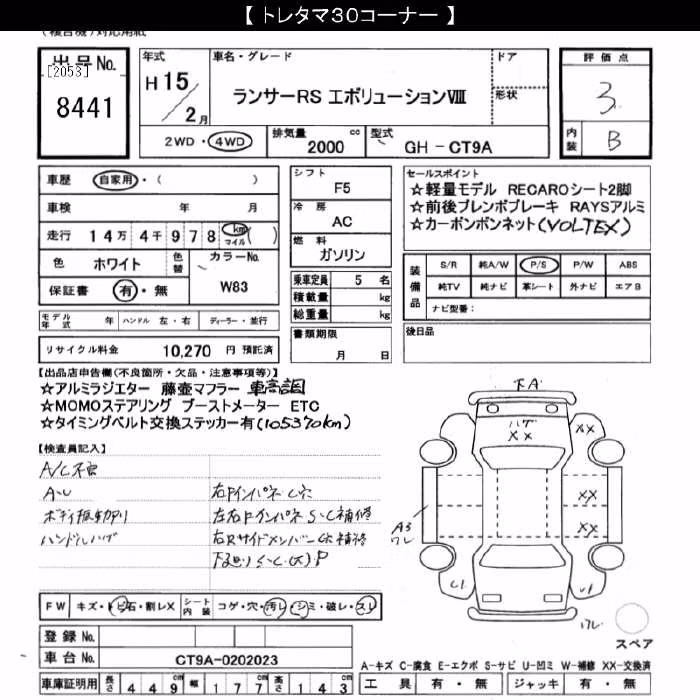 【 トレタマ30コーナー 】
(複合機)対応用紙
出品No. [2053]
8441
年式 車名・グレード ドア 評価点
H 15/2月 ランサーRS エボリューションⅧ 形状 3
2WD・4WD 排気量 2000 cc 型式 GH - CT9A 内装 B
車歴 自家用・( )
車検 年 月
走行 14万4千978 km マイル ( )
色 ホワイト 色替 カラーNo. W83
保証書 有・無
モデル年式 年 ハンドル 左・右 ディーラー・並行
リサイクル料金 10,270 円 預託済
シフト F5
冷房 AC
燃料 ガソリン
乗車定員 5 名
積載量 kg
総重量 kg
書類期限
月 日
セールスポイント
☆軽量モデル RECAROシート2脚
☆前後ブレンボブレーキ RAYSアルミ
☆カーボンボンネット(VOLTEX)
装備品 S/R 純A/W P/S P/W ABS
純TV 純ナビ 革シート 外ナビ エアB
ナビ型番:
後日品
【出品店申告欄(不良箇所・欠品・注意事項等)】
☆アルミラジエター 藤壺マフラー 車高調
☆MOMOステアリング ブーストメーター ETC
☆タイミングベルト交換ステッカー有(105370km)
【検査員記入】
A/C不良
A・U 右FインパネC穴
ボディ板切有り 左右FインパネS・C補修
ハンドルハゲ 右RサイドメンバーC穴補修
下廻りS・C(大)P
下A
ハゲ
XX
XX
XX
XX
A3
ワレ
C1
U1
ワレ
スペア
FW キズ・トビ石・割レX シート内装 コゲ・穴・汚レ・シミ・破レ・スレ
登録No.
車台No. CT9A-0202023
A-キズ C-腐食 E-エクボ S-サビ U-凹ミ W-補修 XX-交換済
車庫証明用 長さ 449 cm 幅 177 cm 高さ 143 cm 工具 有・無 ジャッキ 有・無